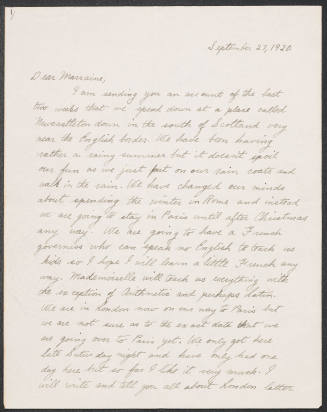 September 27, 1920
Dear Marraine,
I am sending you an account of the last
two weeks that we spend down at a place called
Newcastleton down in the south of Scotland very
near the English border. We have been having
rather a rainy summer but it doesn't spoil
our fun as we just put on our rain coats and
walk in the rain. We have changed our minds
about spending the winter in Rome and instead
we are going to stay in Paris until after Christmas
any way. We are going to have a French
governiss who can speak no English to teach us
kids so I hope I will learn a little French any
way. Mademoiselle will teach us everything with
the exception of Arithmetic and perhaps Latin.
We are in London now on our way to Paris but
we are not sure as to the exact date that we
are going over to Paris yet. We only got here
late Saturday night and have only had one
day here but so far I like it very much. I
will write and tell you all about London later